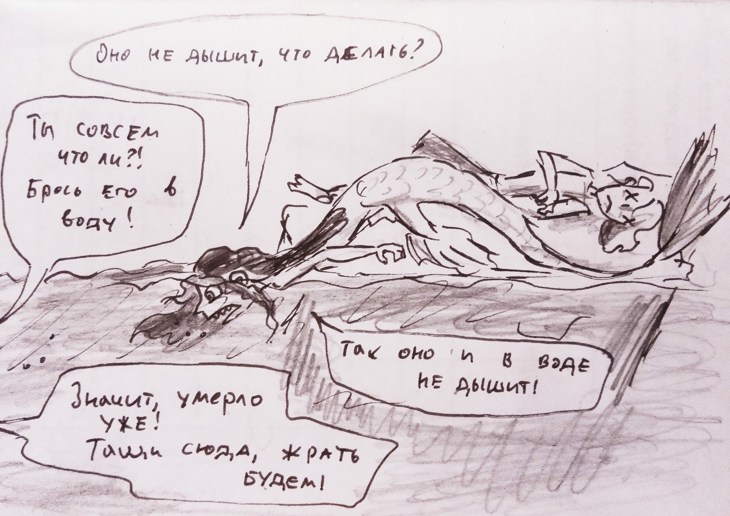 Оно не дышит, что делать?
Ты совсем
что ли?!
Брось его в
воду!
Так оно и в воде
не дышит!
Значит, умерло
уже!
Тащи сюда, жрать
будем!